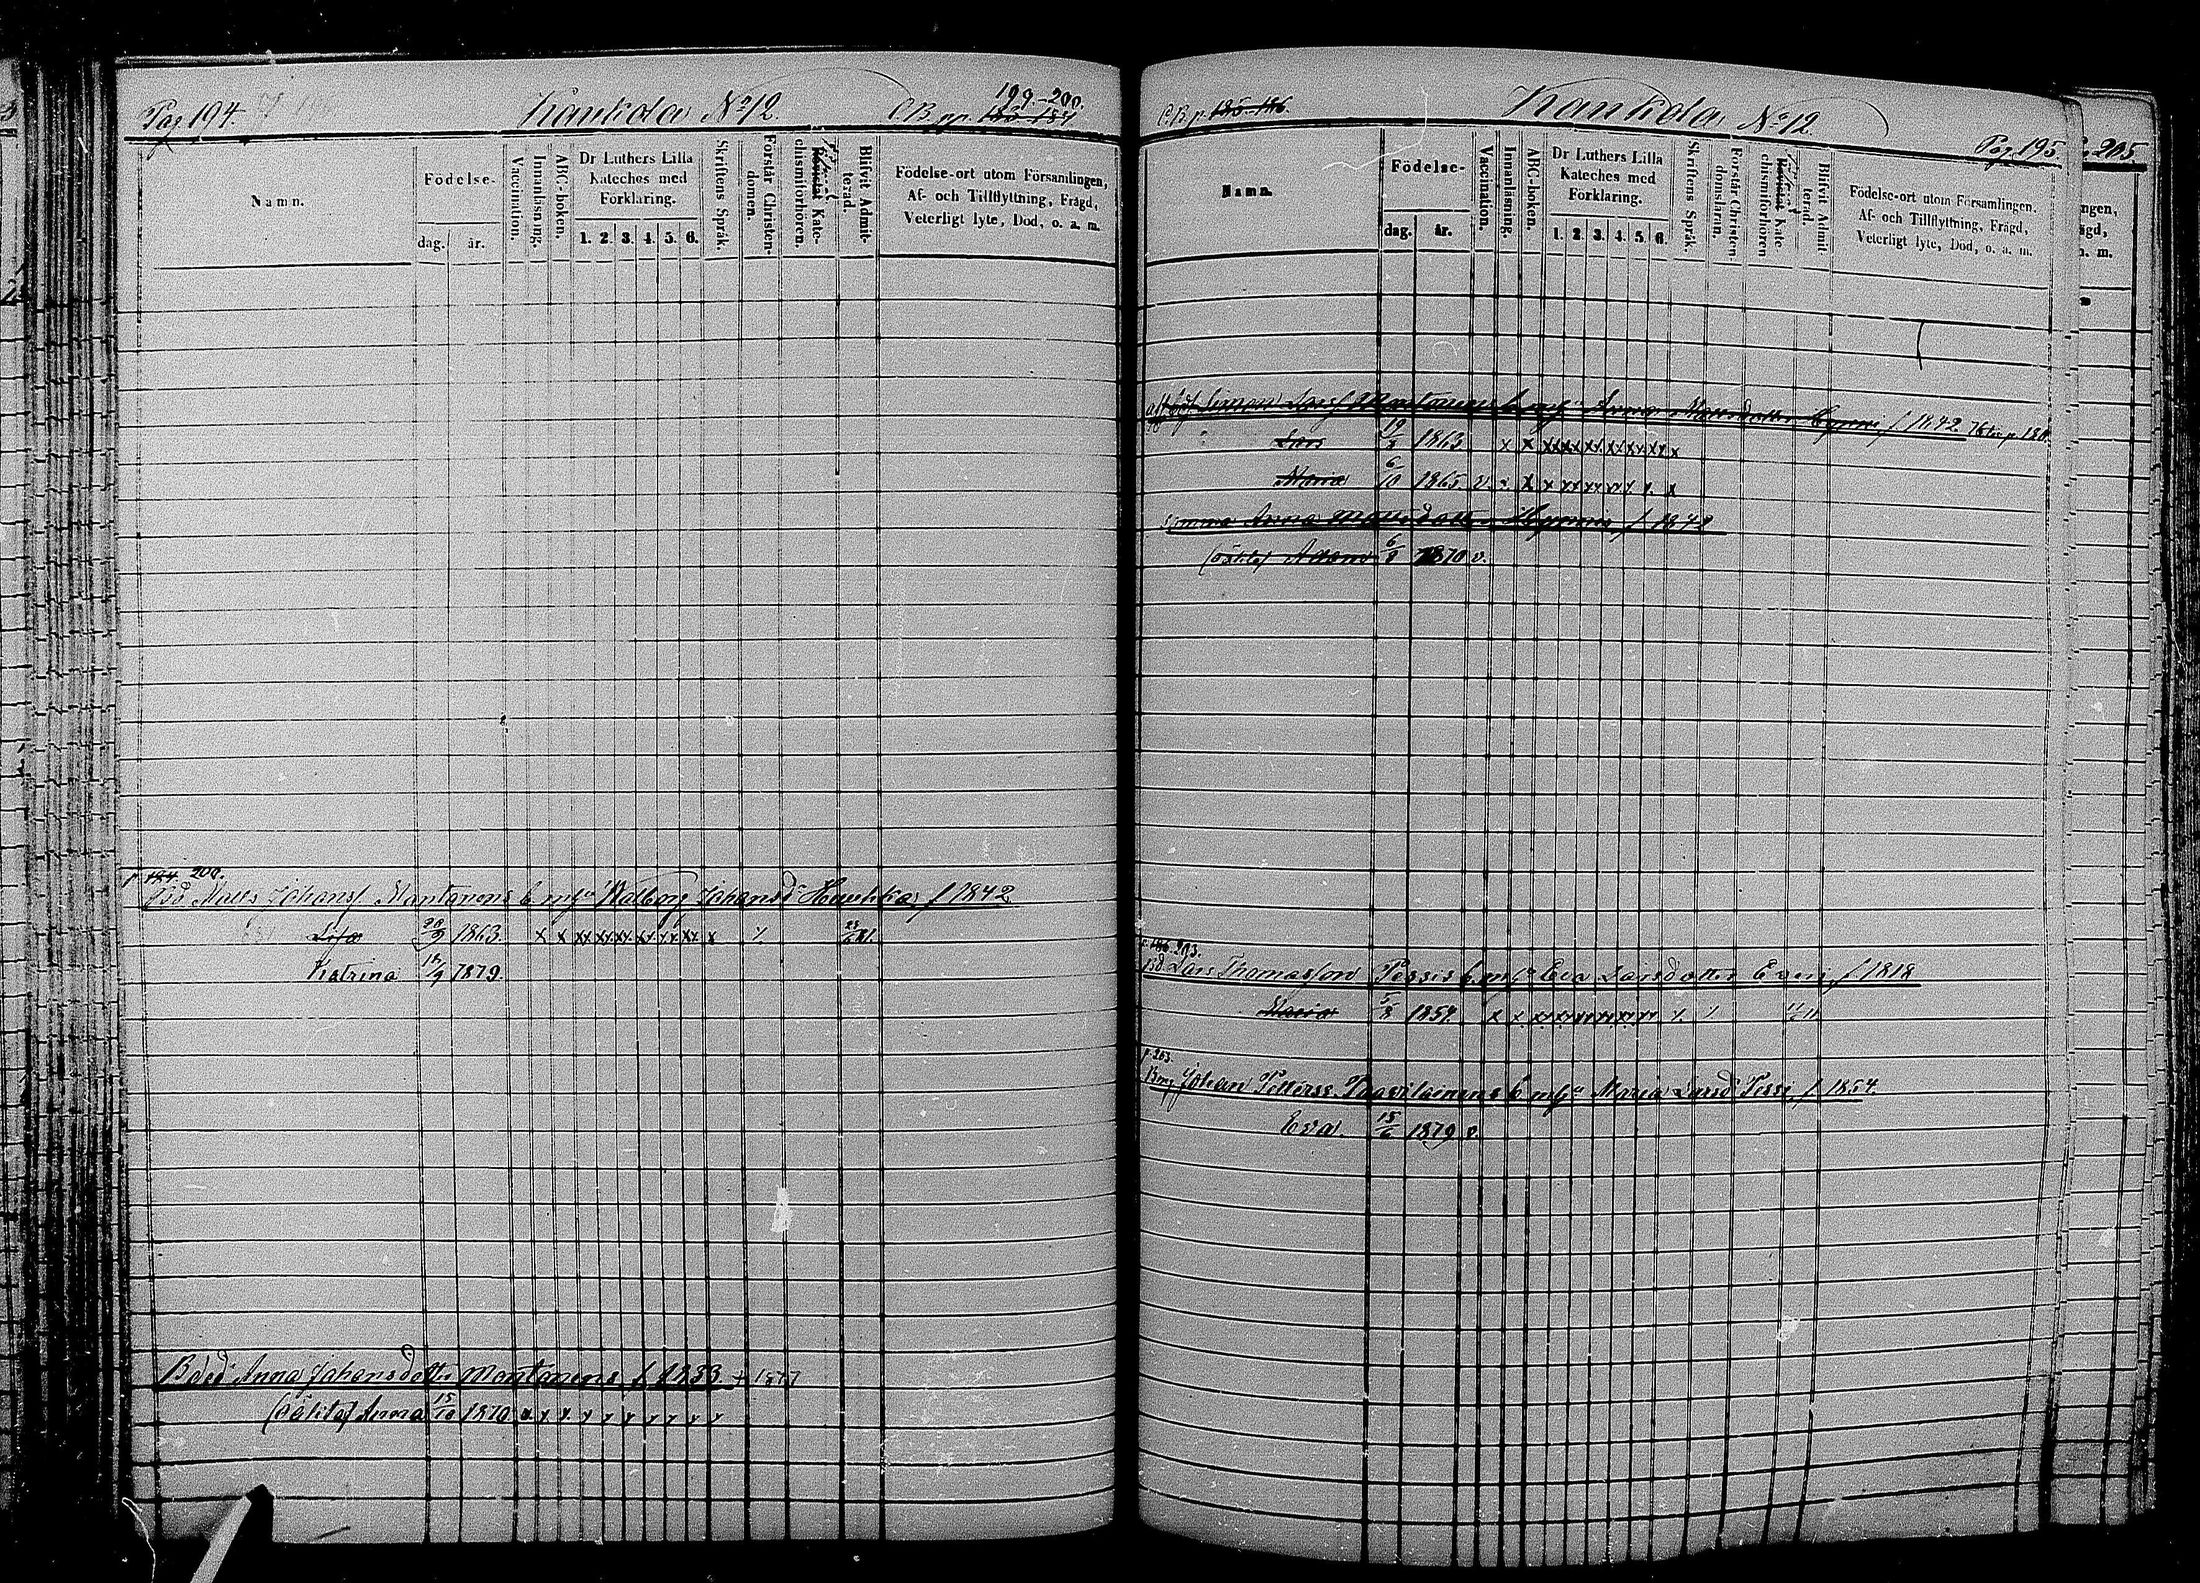 Pag 194.
Kaukola No 12.
C.B. pp. 183-184
199-200.
Namn.
Födelse-
dag.
år.
Vaccination.
Innanläsning.
ABC-boken.
Dr Luthers Lilla
Kateches med
Förklaring.
1. 2. 3. 4. 5. 6.
Skriftens Språk.
Förstår Christen-
domen.
Kate-
chismiförhören.
Blifvit Admit-
terad.
Födelse-ort utom Församlingen,
Af- och Tillflyttning, Frägd,
Veterligt lyte, Död, o. a. m.
p 184 200.
Matts Johansf Mantonens b. m fr Walborg Johansd Haukka f 1842
Lisa 9 1863. x x xx xx xx xx xx xx x
Katrina 7 1879.
Anna Johansdott Montonens f 1833 + 1877
(oäkta) Anna 15/10 1870
C.B. p. 185-186.
Kaukola No 12.
Pag 195.
Namn.
Födelse-
dag.
år.
Vaccination.
Innanläsning.
ABC-boken.
Dr Luthers Lilla
Kateches med
Förklaring.
1. 2. 3. 4. 5. 6.
Skriftens Språk.
Förstår Christen-
domsläran.
Kate-
chismiförhören
Blifvit Admit-
terad.
Födelse-ort utom Församlingen.
Af- och Tillflyttning, Frägd,
Veterligt lyte, Död, o. a. m.
Simon Larsf Mantonens b. m fr Anna Mattsdotter f 1842
Lars 19 1863. x x xx xx xx xx xx xx x
Maria 6/10 1865. v.
Anna Mattsdott f 1842
(oäkta) Adam 6/8 1870 v.
p. 186. 203.
Lars Thomasson Pessis b. m fr Eva Larsdotter f 1818
Maria 5/8 1854.
p. 203.
Johan Pettersf b. m fr Maria Larsd Pessi f 1854.
Eva. 15/6 1879 v.
205.
ngen,
ägd,
a. m.